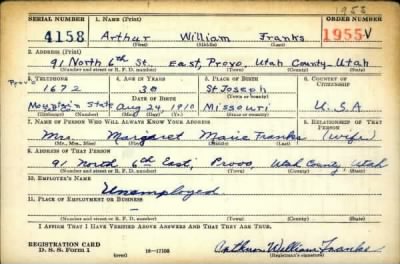 1953
SERIAL NUMBER 1. NAME (Print) ORDER NUMBER
4158 Arthur William Franks 1955-V
(First) (Middle) (Last)
2. ADDRESS (Print)
91 North 6th St. East, Provo, Utah County-Utah
(Number and street or R. F. D. number) (Town) (County) (State)
3. TELEPHONE 4. AGE IN YEARS 5. PLACE OF BIRTH 6. COUNTRY OF CITIZENSHIP
Provo
1672 30 St Joseph
DATE OF BIRTH
Aug 24, 1910 Missouri U.S.A
(Exchange) (Number) (Mo.) (Day) (Yr.) (Town or county) (State or country)
7. NAME OF PERSON WHO WILL ALWAYS KNOW YOUR ADDRESS 8. RELATIONSHIP OF THAT PERSON
Mrs. Margaret Marie Franks (wife)
(Mr., Mrs., Miss) (First) (Middle) (Last)
9. ADDRESS OF THAT PERSON
91 North 6th East, Provo Utah County, Utah
(Number and street or R. F. D. number) (Town) (County) (State)
10. EMPLOYER'S NAME
Unemployed
11. PLACE OF EMPLOYMENT OR BUSINESS
(Number and street or R. F. D. number) (Town) (County) (State)
I AFFIRM THAT I HAVE VERIFIED ABOVE ANSWERS AND THAT THEY ARE TRUE.
REGISTRATION CARD
D. S. S. Form 1 16-17105 Arthur William Franks
(over) (Registrant's signature)